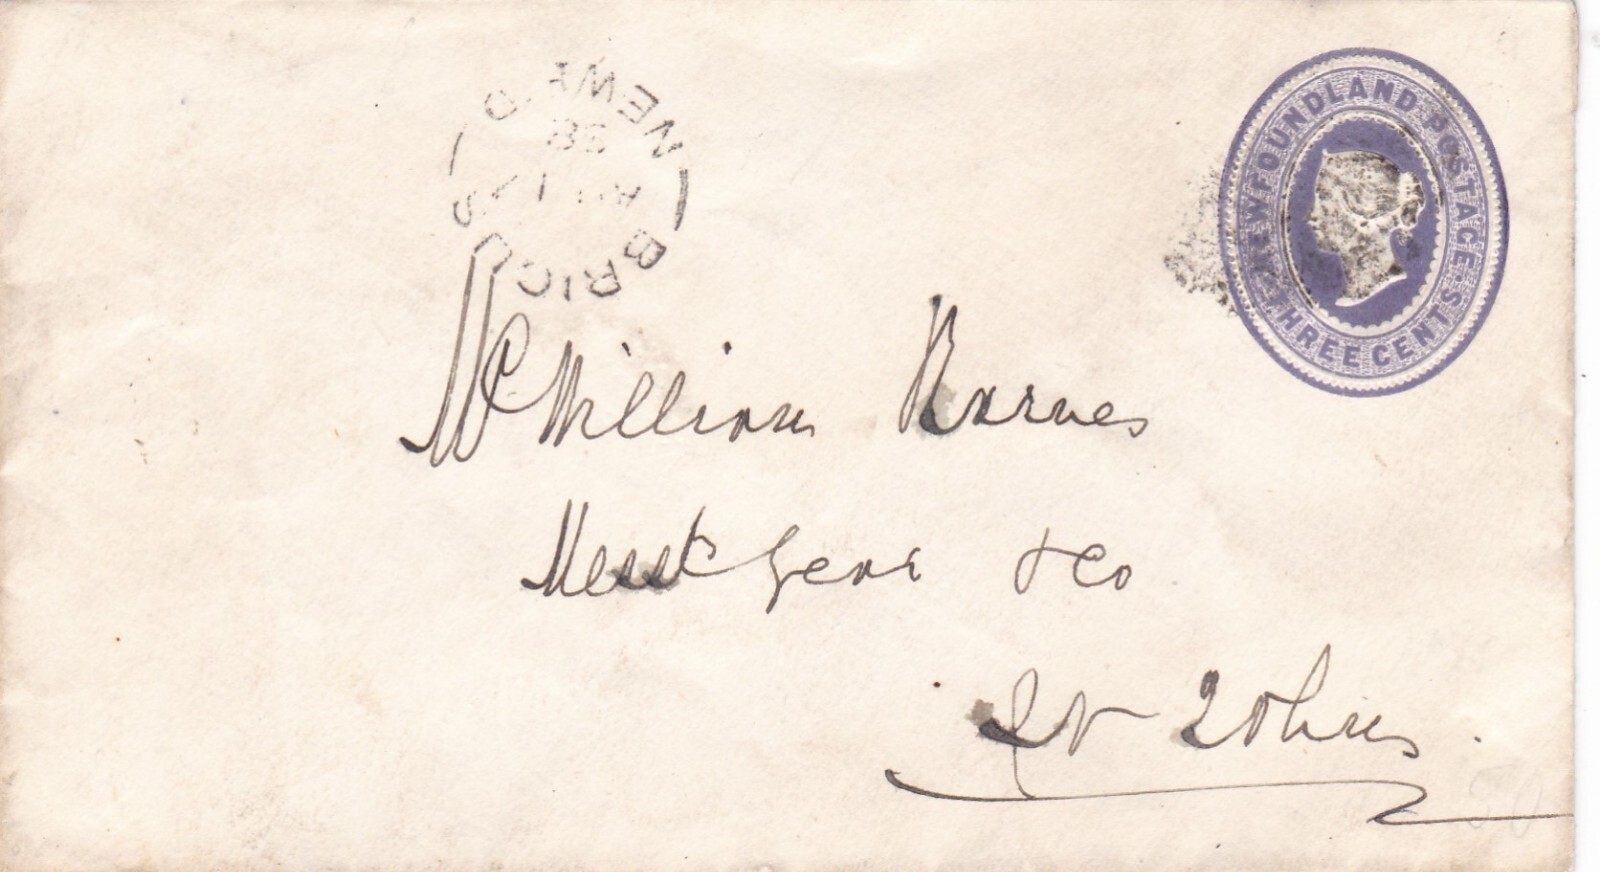 NEWFOUNDLAND POSTAGE.
THREE CENTS
BRIGUS
NEWF'D
Mr William Barnes
Messrs Gear & Co
St Johns.
50